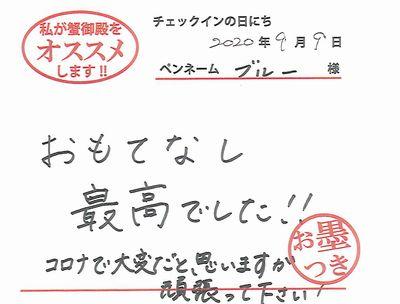 私が蟹御殿を
オススメ
します!!
チェックインの日にち
2020年9月9日
ペンネーム ブルー 様
おもてなし
最高でした!!
コロナで大変だと、思いますが
頑張って下さい!
お墨
つき